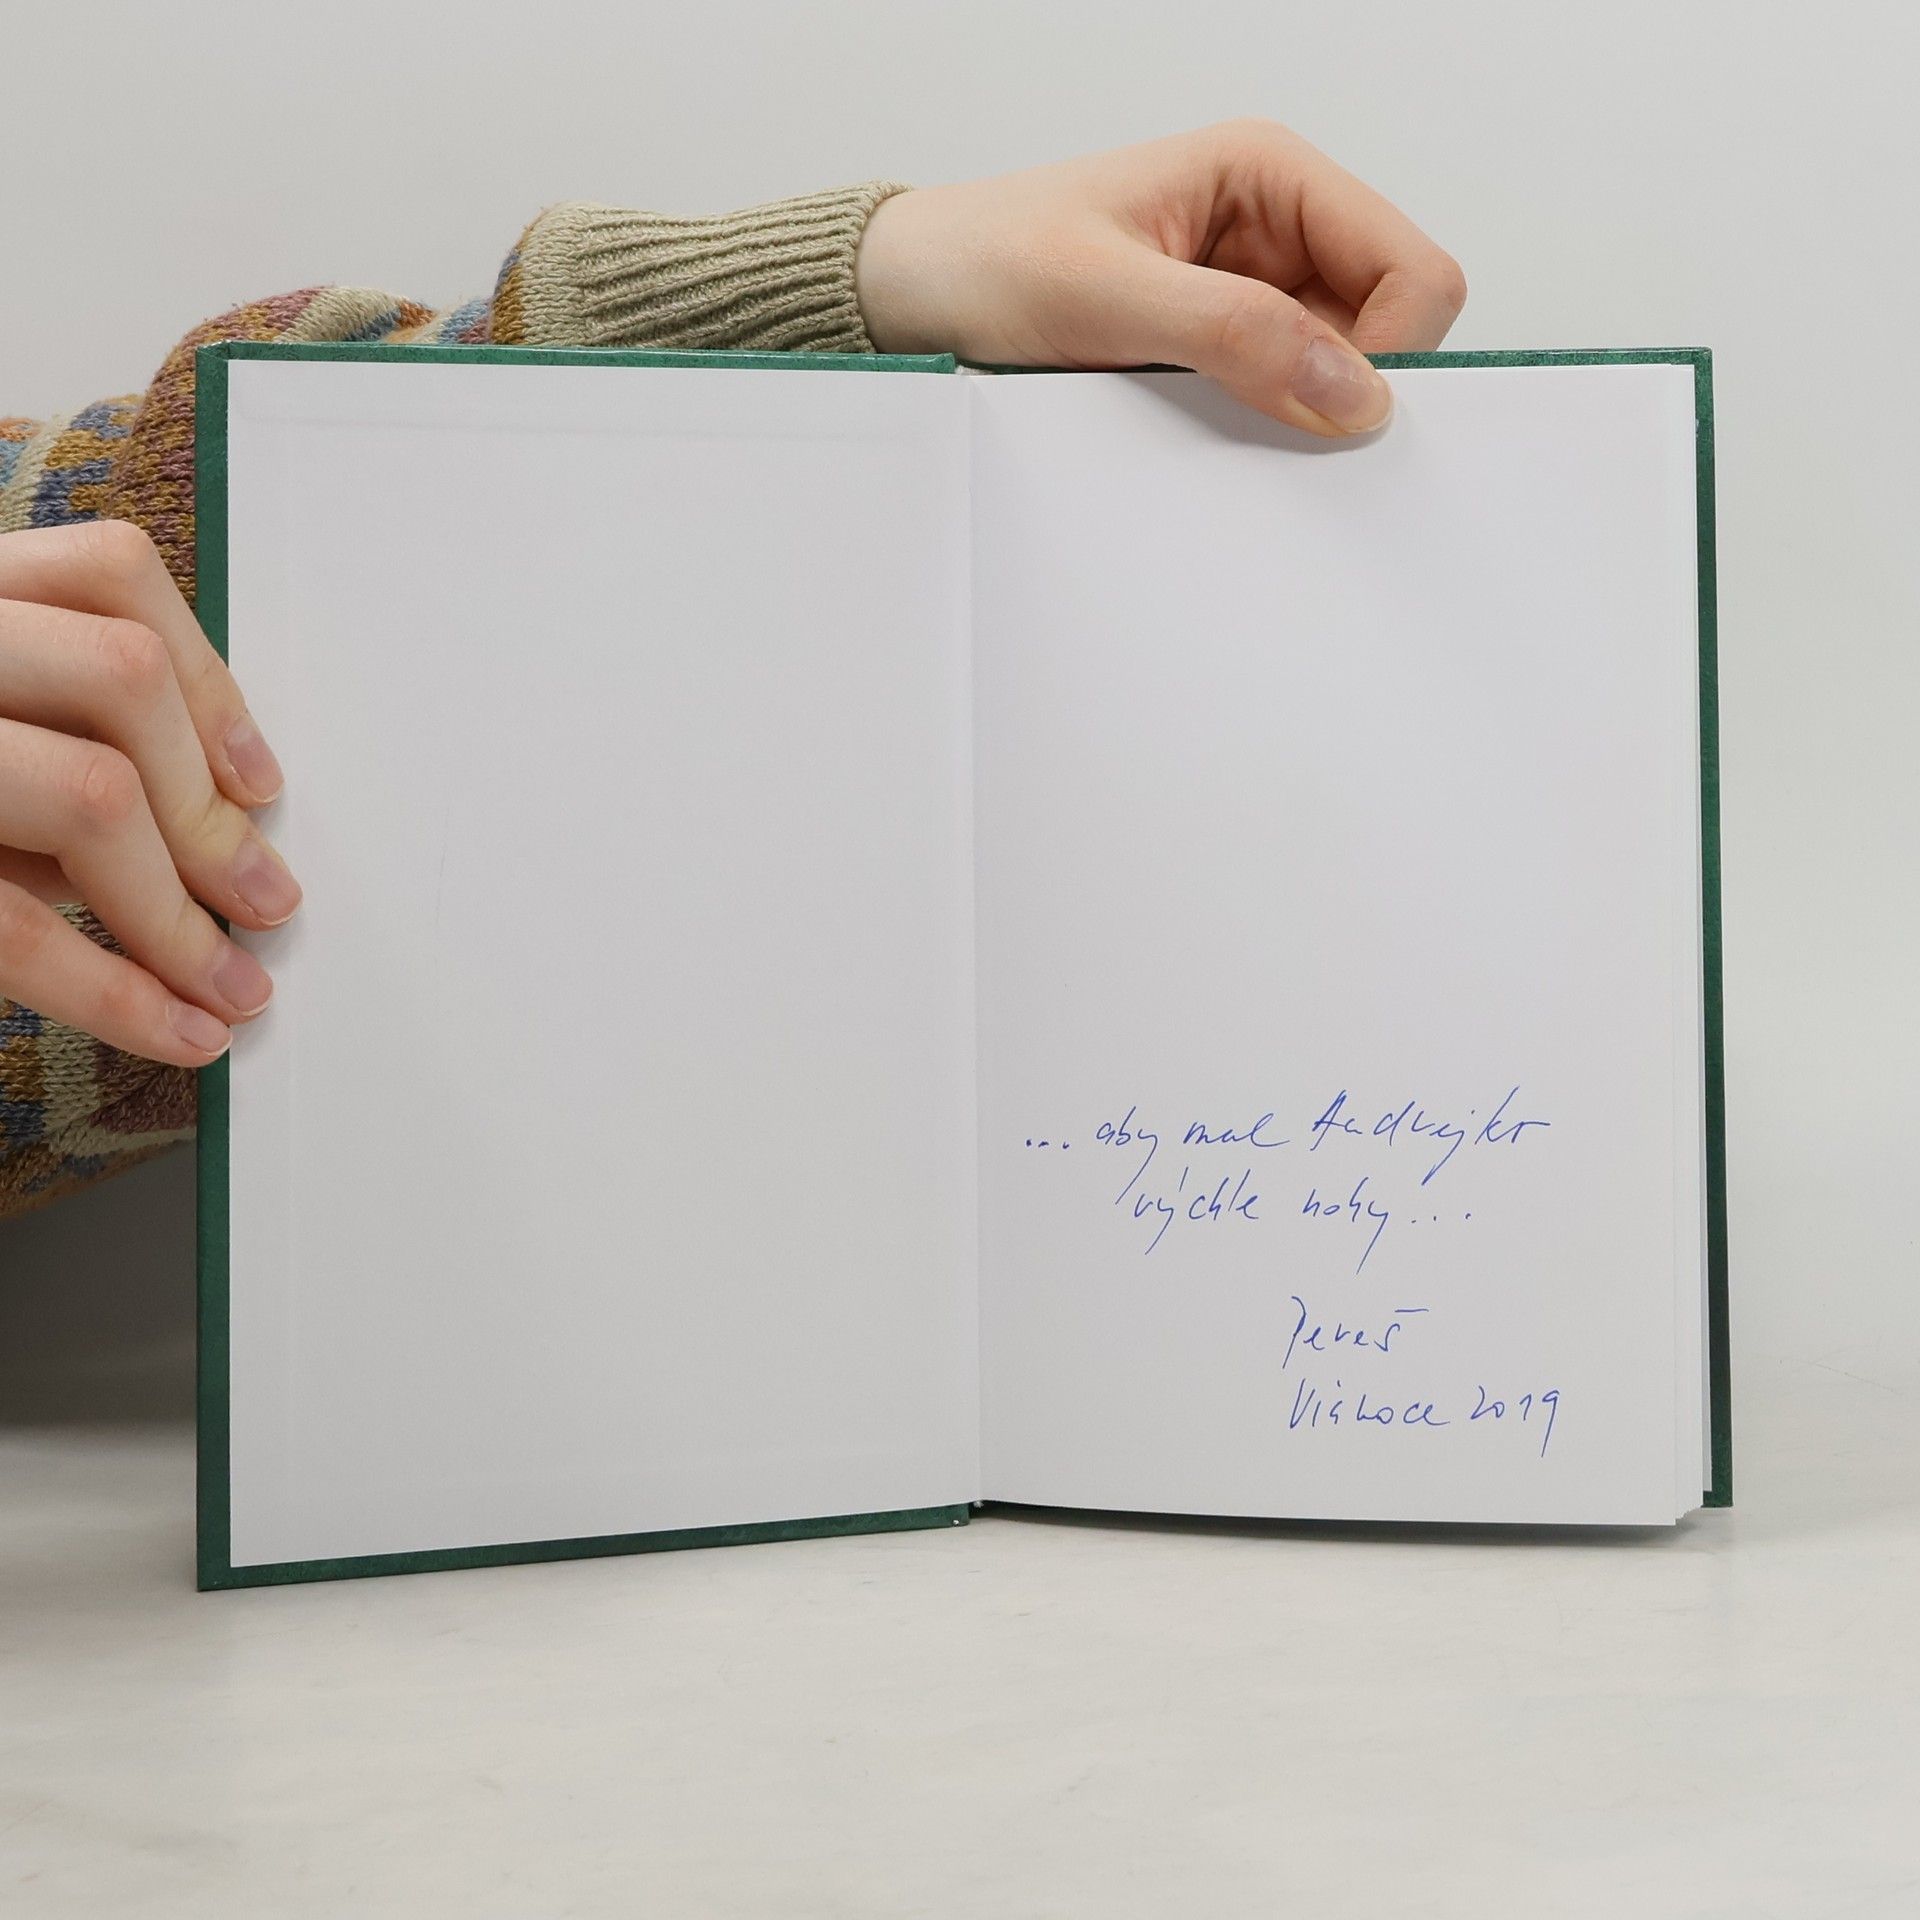 ... aby mal Andrejko
rýchle nohy...
Pereš
Vianoce 2019